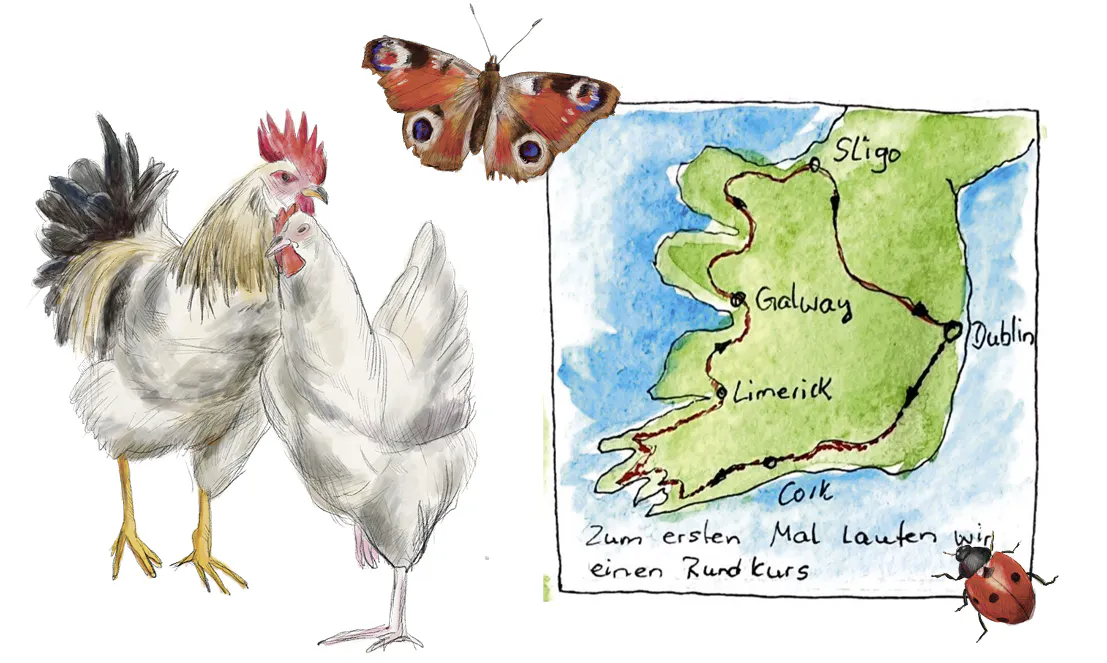 Sligo
Galway
Dublin
Limerick
Cork
Zum ersten Mal laufen wir
einen Rundkurs